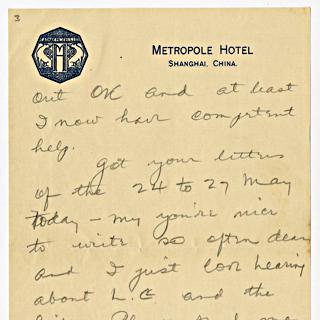 3
METROPOLE HOTEL
SHANGHAI, CHINA.
out OK and at least
I now have competent
help.
Got your letters
of the 24 to 27 May
today - my you're nice
to write so often dear
and I just love hearing
about L.C. and the